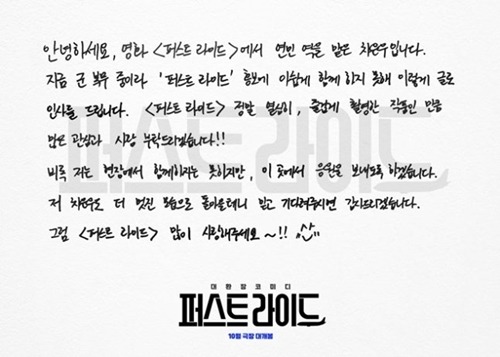 안녕하세요, 영화 <퍼스트 라이드>에서 연민 역을 맡은 차은우입니다.
지금 군 복무 중이라 '퍼스트 라이드' 홍보에 아쉽게 함께 하지 못해 이렇게 글로
인사를 드립니다. <퍼스트 라이드> 정말 열심히, 즐겁게 촬영한 작품인 만큼
많은 관심과 사랑 부탁드리겠습니다!!
비록 저는 현장에서 함께하지는 못하지만, 이 곳에서 응원을 보내도록 하겠습니다.
저 차은우도 더 멋진 모습으로 돌아올테니 믿고 기다려주시면 감사드리겠습니다.
그럼 <퍼스트 라이드> 많이 사랑해주세요~!!
퍼스트 라이드
대환장코미디
퍼스트 라이드
10월 극장 대개봉